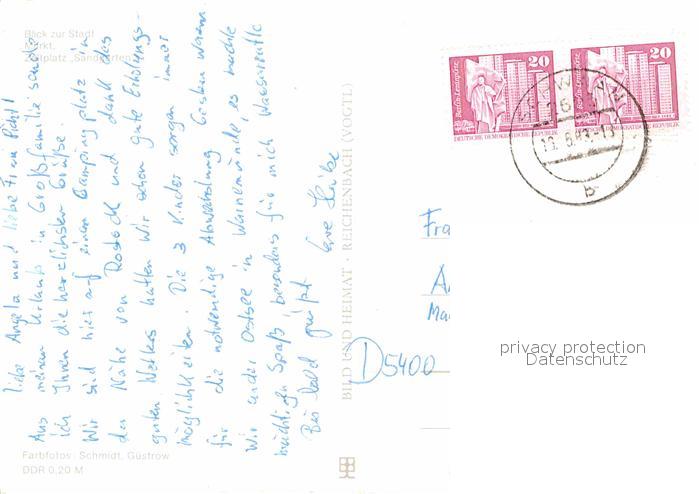 Blick zur Stadt
Markt
Zeltplatz „Sandgarten"
Liebe Angela und liebe Frau
Aus meinem Urlaub in Großfamilie sende
ich Ihnen die herzlichsten Grüße.
Wir sind hier auf einem Campingplatz in
der Nähe von Rostock und dank des
guten Wetters hatten wir schon gute Erholungs-
möglichkeiten. Die 3 Kinder sorgen immer
für die notwendige Abwechslung. Gestern waren
wir an der Ostsee in Warnemünde, es machte
mächtigen Spaß besonders für mich Wasserratte
Bis bald grüßt Ihre
Farbfotos: Schmidt, Güstrow
DDR 0,20 M
BILD UND HEIMAT · REICHENBACH (VOGTL)
Berlin-Leninplatz
20
DEUTSCHE DEMOKRATISCHE REPUBLIK
Berlin-Leninplatz
20
DEUTSCHE DEMOKRATISCHE REPUBLIK
b
Fra
A
D5400
privacy protection
Datenschutz